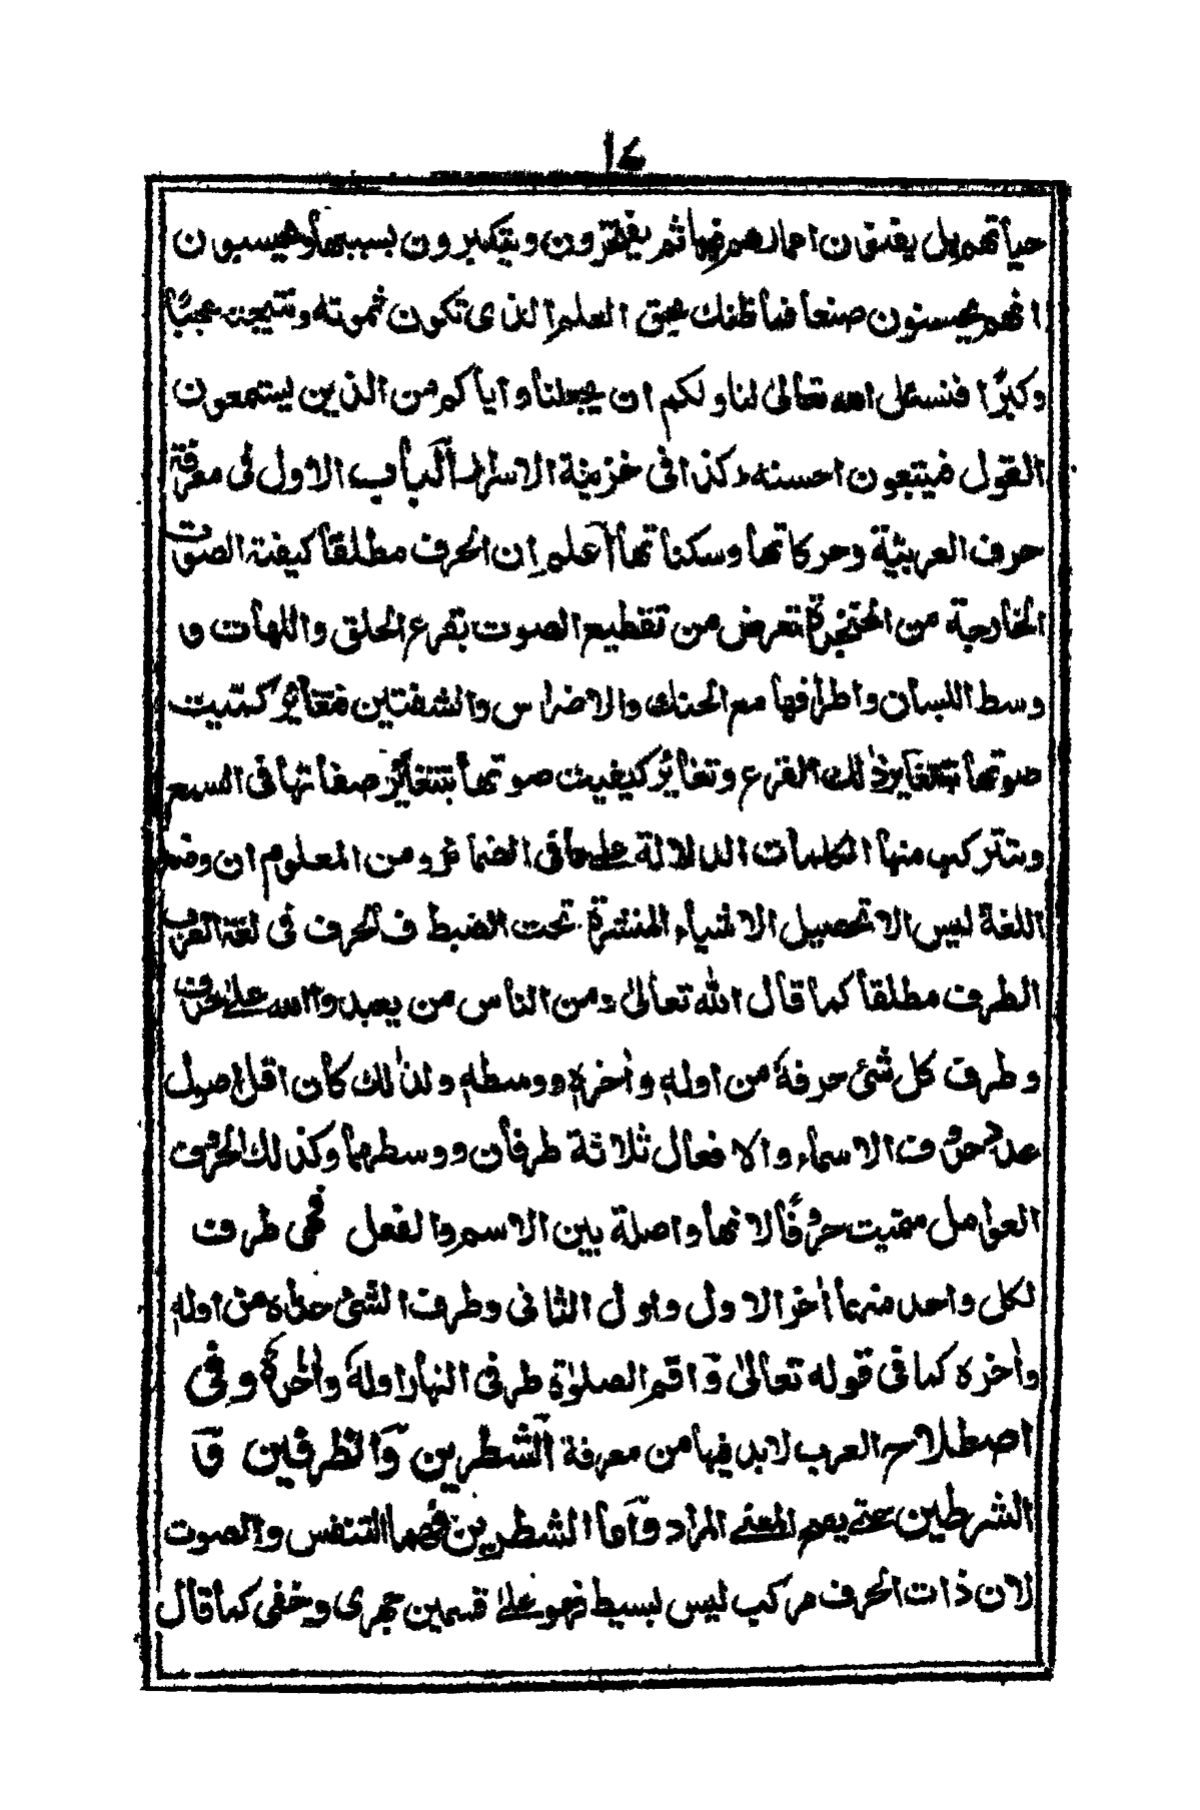 ١٤
حياتهم بل يفنون اعمارهم فيها ثم يفتخرون ويتكبرون بسببها ويحسبون
انهم يحسنون صنعا فما ظنك بحق العلم الذى تكون ثموته ونتيجته عجبًا
وكبرًا فنسئل الله تعالى لنا ولكم ان يجعلنا واياكم من الذين يستمعون
القول فيتبعون احسنه كذا فى خزينة الاسرار الباب الاول فى معرفة
حرف العربيّة وحركاتها وسكناتها اعلم ان الحرف مطلقا كيفية الصوت
الخارجة من الحنجرة تعرض من تقطيع الصوت بقرع الحلق واللهات و
وسط اللسان واطرافها مع الحنك والاضراس والشفتين فتغائر كتبيت
صوتها بتغاير ذلك القرع وتغائر كيفيت صوتها بتغائر صفاتها فى السمع
وتتركب منها الكلمات الدلالة على ما فى الضمائر ومن المعلوم ان وضع
اللغة ليس الا تحصيل الاشياء المنتشرة تحت الضبط ف الحرف فى لغة العرب
الطرف مطلقا كما قال الله تعالىٰ ومن الناس من يعبد والله على حرف
وطرف كل شئ حرفه من اوله واخره ووسطه ولذلك كان اقل اصل
عدد حروف الاسماء والافعال ثلاثة طرفان ووسطهما وكذلك الحروف
العوامل سميت حروفًا لانها واصلة بين الاسم والفعل فهى طرف
لكل واحد منهما اٰخر الاول واول الثانى وطرف الشئ حداه من اوله
واٰخره كما فى قوله تعالىٰ واقم الصلوٰة طرفى النهار اوله واٰخره وفى
اصطلاح العرب لابد فيها من معرفة الشطرين والظرفين و
الشرطين حتى يعم المعنى المراد واما الشطرين فهما التنفس والصوت
لان ذات الحرف مركب ليس بسيط فهو على قسمين جهرى وخفى كما قال